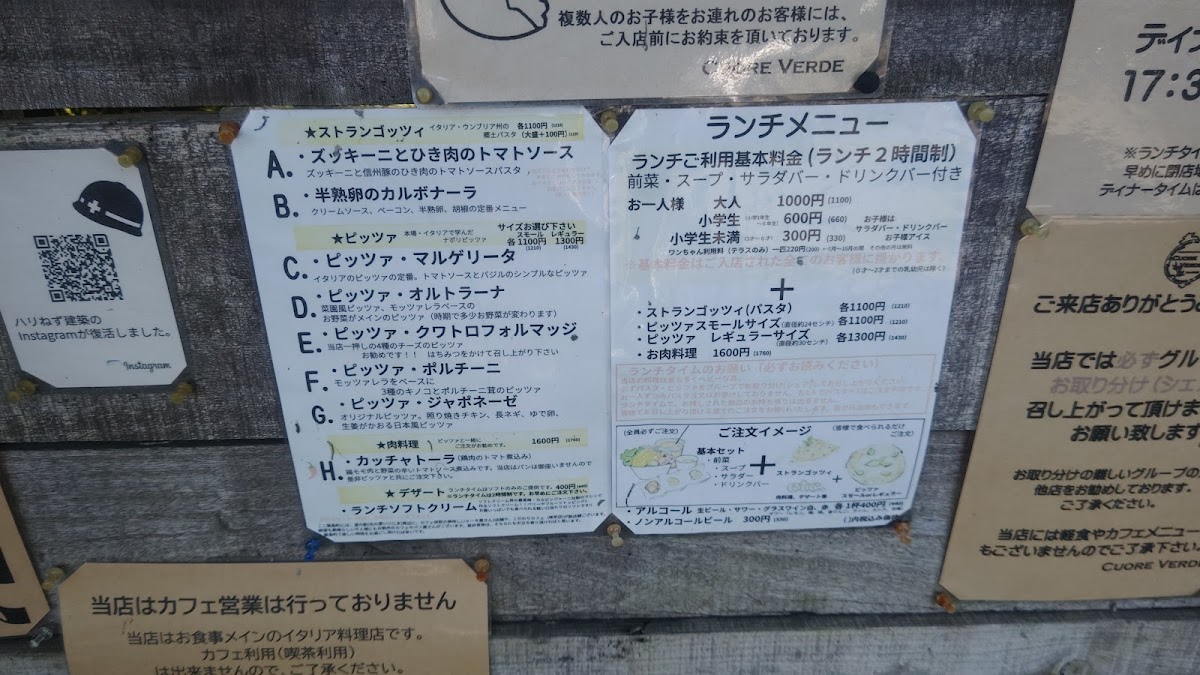 複数人のお子様をお連れのお客様には、
ご入店前にお約束を頂いております。
CUORE VERDE
ハリねず建築の
Instagramが復活しました。
Instagram
★ストランゴッツィ イタリア・ウンブリア州の 各1100円
郷土パスタ (大盛+100円)
A. ・ズッキーニとひき肉のトマトソース
ズッキーニと信州豚のひき肉のトマトソースパスタ
B. ・半熟卵のカルボナーラ
クリームソース、ベーコン、半熟卵、胡椒の定番メニュー
★ピッツァ 本場・イタリアで学んだ
ナポリピッツァ
サイズお選び下さい
スモール レギュラー
各1100円 1300円
(1210) (1430)
C. ・ピッツァ・マルゲリータ
イタリアのピッツァの定番。トマトソースとバジルのシンプルなピッツァ
D. ・ピッツァ・オルトラーナ
菜園風ピッツァ、モッツァレラベースの
お野菜がメインのピッツァ (時期で多少お野菜が変わります)
E. ・ピッツァ・クワトロフォルマッジ
当店一押しの4種のチーズのピッツァ
お勧めです!! はちみつをかけて召し上がり下さい
F. ・ピッツァ・ポルチーニ
モッツァレラをベースに
3種のキノコとポルチーニ茸のピッツァ
G. ・ピッツァ・ジャポネーゼ
オリジナルピッツァ。照り焼きチキン、長ネギ、ゆで卵、
生姜がかおる日本風ピッツァ
★肉料理 ピッツァと一緒に
ご注文がお勧めです。
1600円 (1760)
H. ・カッチャトーラ (鶏肉のトマト煮込み)
鶏モモ肉と野菜の辛いトマトソース煮込みです。当店はパンは御座いませんので
是非ピッツァと共にご注文下さい。
★デザート ランチタイムはソフトのみのご提供です。400円
※ランチタイムは2時間制です。お早めにご注文下さい。
・ランチソフトクリーム
ランチメニュー
ランチご利用基本料金 (ランチ2時間制)
前菜・スープ・サラダバー・ドリンクバー付き
お一人様 大人 1000円 (1100)
小学生 600円 (660)
小学生未満 300円 (330)
お子様は
サラダバー・ドリンクバー
お子様アイス
ワンちゃん利用料 (テラスのみ) 一匹220円
※基本料金はご入店された全てのお客様に掛かります。
(0才〜2才までの乳幼児は除く)
+
・ストランゴッツィ (パスタ) 各1100円 (1210)
・ピッツァスモールサイズ (直径約24センチ) 各1100円 (1210)
・ピッツァ レギュラーサイズ (直径約30センチ) 各1300円 (1430)
・お肉料理 1600円 (1760)
ランチタイムのお願い (必ずお読みください)
(全員必ずご注文)
ご注文イメージ
(皆様で食べられるだけ
ご注文)
基本セット
・前菜
・スープ
・サラダー
・ドリンクバー
+
ストランゴッツィ
+
ピッツァ
スモールorレギュラー
肉料理、デザート等
・アルコール 生ビール・サワー・グラスワイン白、赤 各1杯400円
・ノンアルコールビール 300円 (330)
( )内税込み価格
ディ
17:3
※ランチタイ
早めに閉店
ティナータイムは
ご来店ありがとう
当店では必ずグル
お取り分け (シェ
召し上がって頂けま
お願い致します
お取り分けの難しいグループの
他店をお勧めしております。
ご了承ください。
当店には軽食やカフェメニュー
もございませんのでご了承下さい
CUORE VERDE
当店はカフェ営業は行っておりません
当店はお食事メインのイタリア料理店です。
カフェ利用 (喫茶利用)
は出来ませんので、ご了承ください。